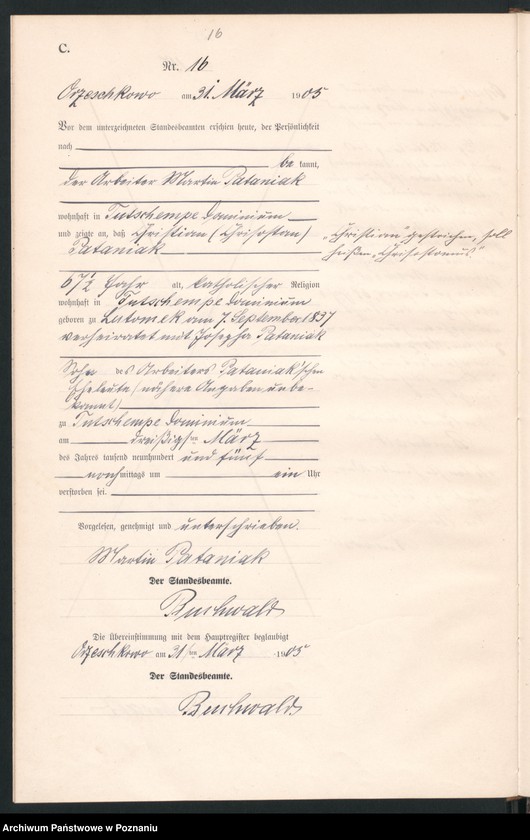 16
C.
Nr. 16
Orzeschkowo am 31. März 1905
Vor dem unterzeichneten Standesbeamten erschien heute, der Persönlichkeit
nach
be kannt,
der Arbeiter Martin Pataniak
wohnhaft in Tutschempe Dominium
und zeigte an, daß Christian (Chrisostan)
Pataniak
„Christian" gestrichen, soll
heißen „Chrisostomus"
67 1/2 Jahr alt, katholischer Religion
wohnhaft in Tutschempe Dominium
geboren zu Lutomek am 7. September 1837
verheiratet mit Josepha Pataniak
Sohn des Arbeiters Pataniak'schen
Eheleute (nähere Angaben unbe-
kannt)
zu Tutschempe Dominium
am dreißigsten März
des Jahres tausend neunhundert und fünf
nachmittags um ein Uhr
verstorben sei.
Vorgelesen, genehmigt und unterschrieben.
Martin Pataniak
Der Standesbeamte.
Buchwald
Die Übereinstimmung mit dem Hauptregister beglaubigt
Orzeschkowo am 31ten März 1905
Der Standesbeamte.
Buchwald
Archiwum Państwowe w Poznaniu